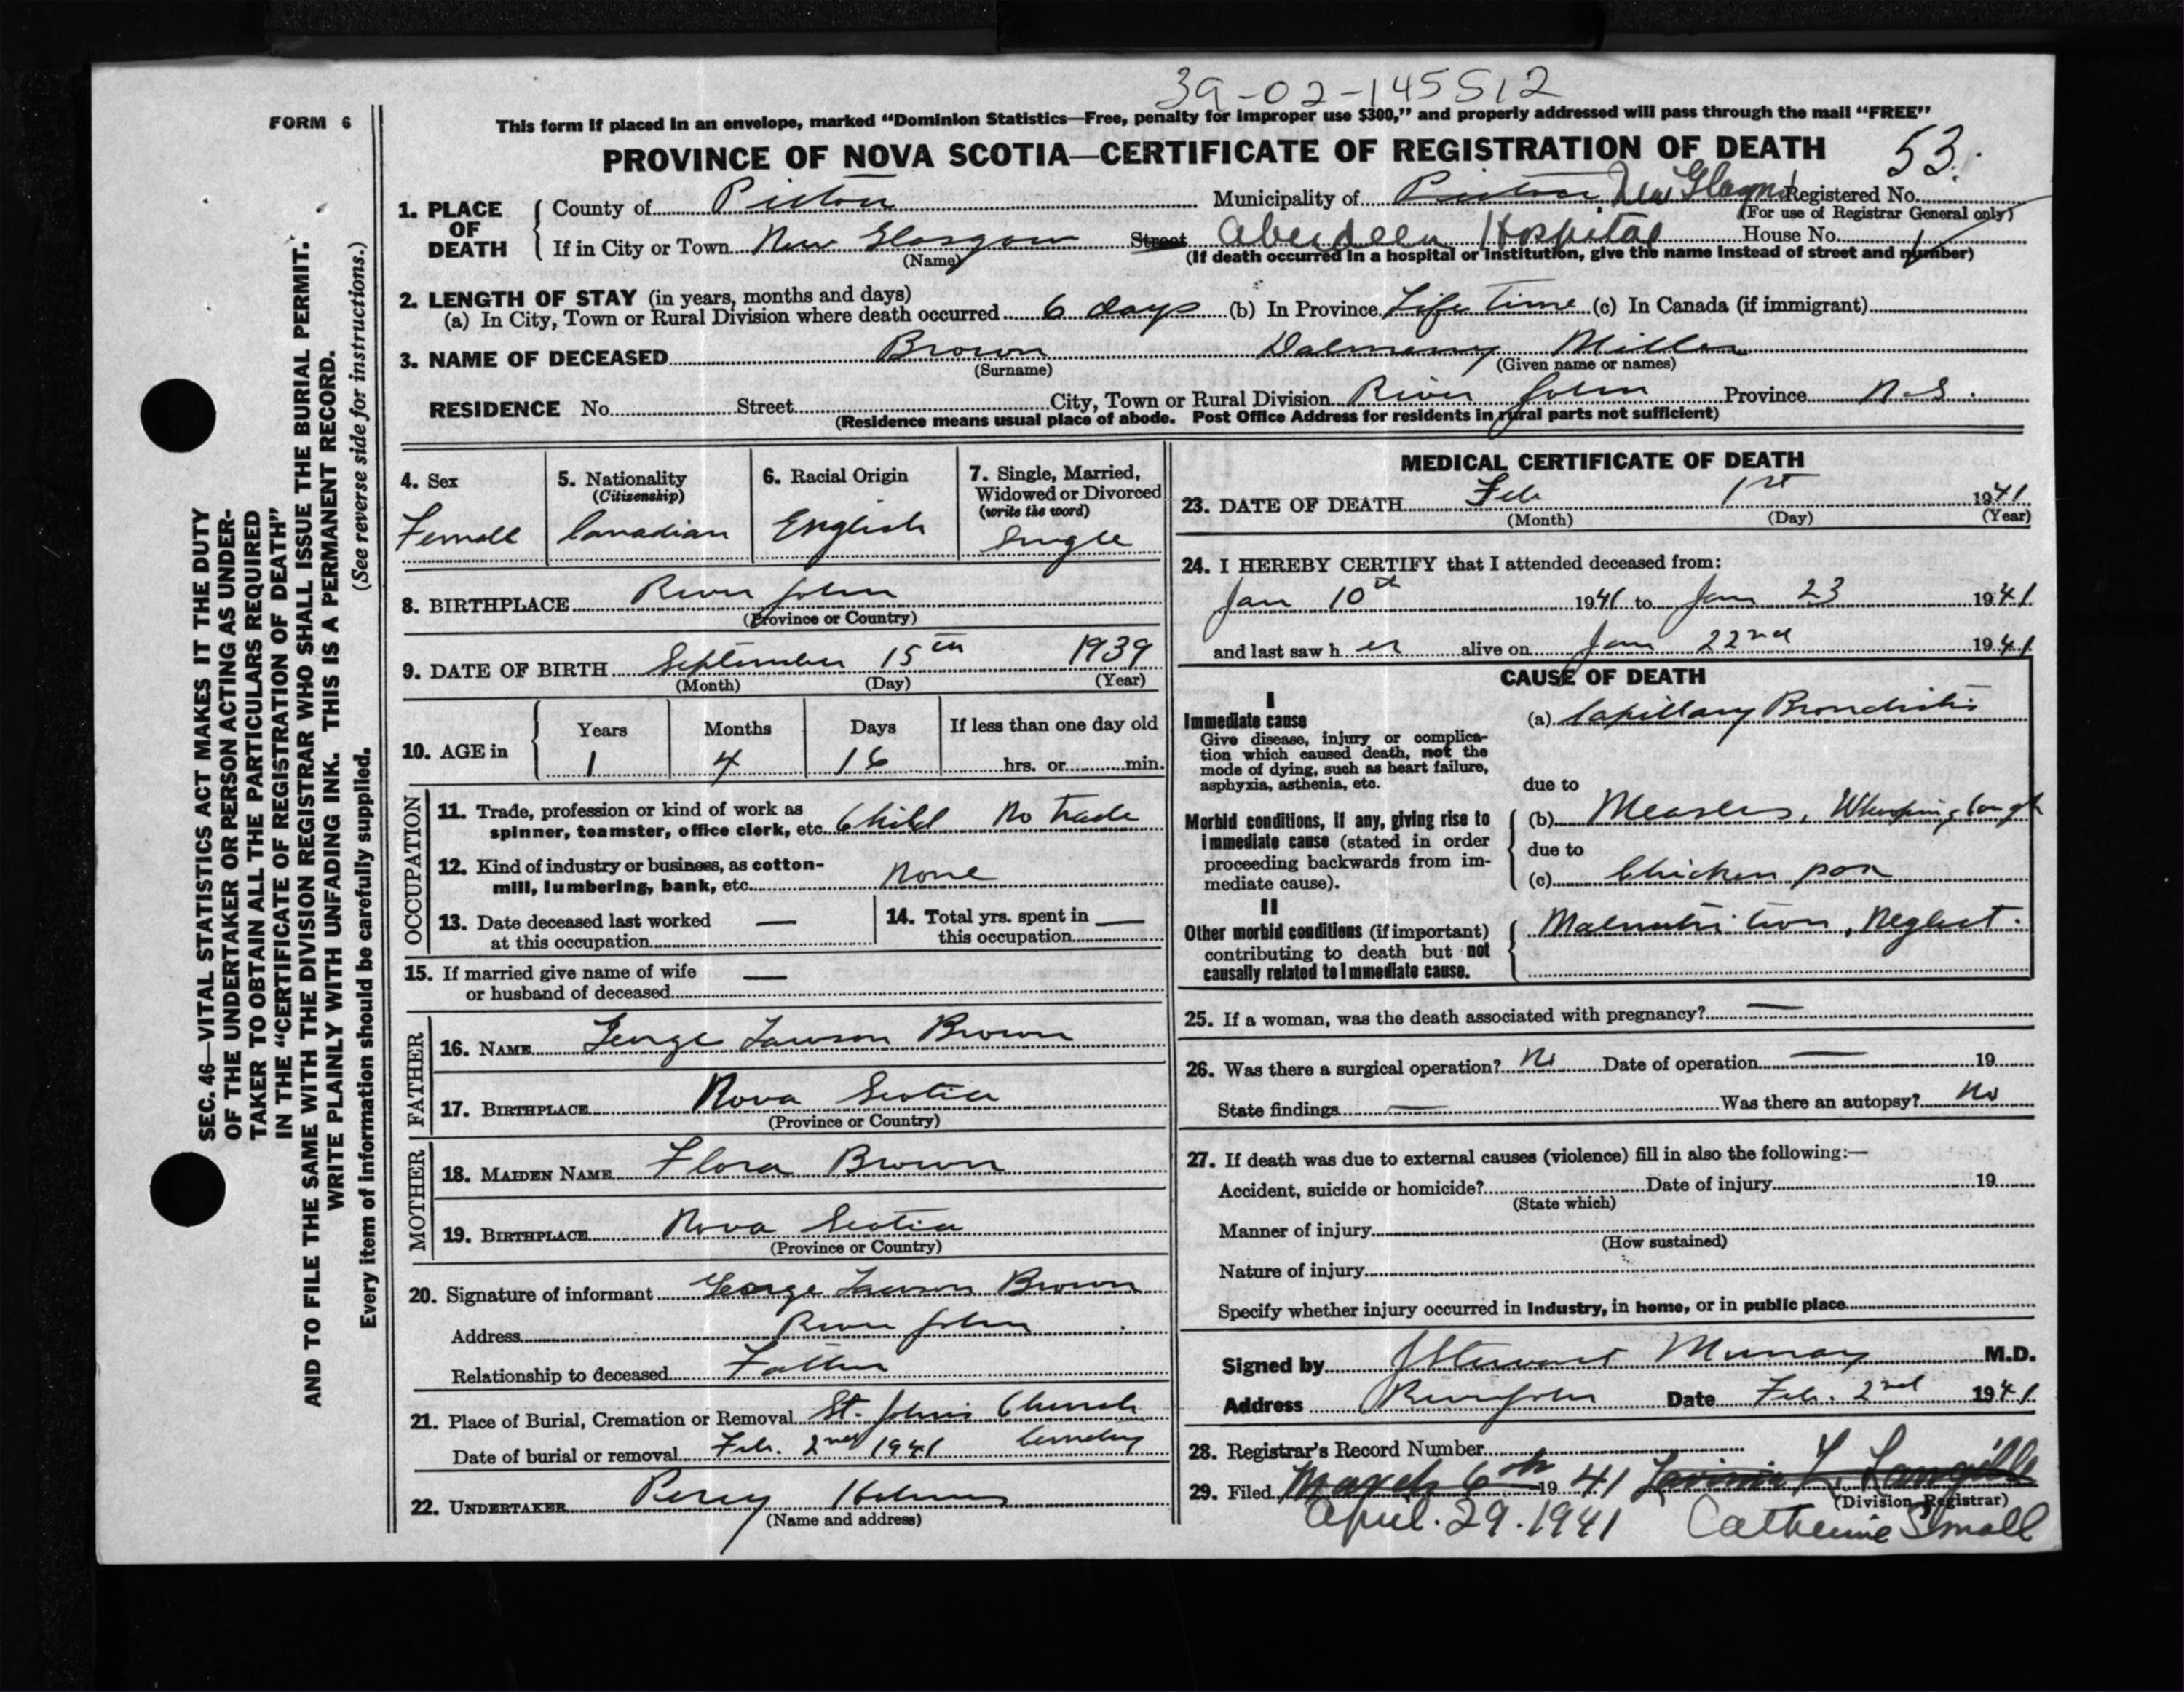 39-02-145512
FORM 6
This form if placed in an envelope, marked “Dominion Statistics—Free, penalty for improper use $300,” and properly addressed will pass through the mail “FREE”
PROVINCE OF NOVA SCOTIA—CERTIFICATE OF REGISTRATION OF DEATH 53.
1. PLACE OF DEATH
County of Pictou Municipality of Pictou, New Glasgow Registered No.
(For use of Registrar General only)
If in City or Town New Glasgow Street Aberdeen Hospital House No.
(Name) (If death occurred in a hospital or institution, give the name instead of street and number)
2. LENGTH OF STAY (in years, months and days)
(a) In City, Town or Rural Division where death occurred 6 days (b) In Province Life Time (c) In Canada (if immigrant)
3. NAME OF DECEASED Brown Dalmeny Miller
(Surname) (Given name or names)
RESIDENCE No. Street City, Town or Rural Division River John Province N.S.
(Residence means usual place of abode. Post Office Address for residents in rural parts not sufficient)
4. Sex
Female
5. Nationality
(Citizenship)
Canadian
6. Racial Origin
English
7. Single, Married,
Widowed or Divorced
(write the word)
Single
8. BIRTHPLACE River John
(Province or Country)
9. DATE OF BIRTH September 15th 1939
(Month) (Day) (Year)
10. AGE in
Years Months Days If less than one day old
1 4 16 hrs. or min.
OCCUPATION
11. Trade, profession or kind of work as
spinner, teamster, office clerk, etc. Child No trade
12. Kind of industry or business, as cotton-
mill, lumbering, bank, etc. None
13. Date deceased last worked —
at this occupation
14. Total yrs. spent in —
this occupation
15. If married give name of wife —
or husband of deceased
FATHER
16. NAME George Lawson Brown
17. BIRTHPLACE Nova Scotia
(Province or Country)
MOTHER
18. MAIDEN NAME Flora Brown
19. BIRTHPLACE Nova Scotia
(Province or Country)
20. Signature of informant George Lawson Brown
Address River John
Relationship to deceased Father
21. Place of Burial, Cremation or Removal St. John's Church
Date of burial or removal Feb. 2nd 1941 Cemetery
22. UNDERTAKER Percy Holmes
(Name and address)
MEDICAL CERTIFICATE OF DEATH
23. DATE OF DEATH Feb 1st 1941
(Month) (Day) (Year)
24. I HEREBY CERTIFY that I attended deceased from:
Jan 10th 1941 to Jan 23 1941
and last saw h er alive on Jan 22nd 1941
CAUSE OF DEATH
I
Immediate cause
Give disease, injury or complica-
tion which caused death, not the
mode of dying, such as heart failure,
asphyxia, asthenia, etc.
(a) Capillary Bronchitis
due to
Morbid conditions, if any, giving rise to
immediate cause (stated in order
proceeding backwards from im-
mediate cause).
(b) Measles, Whooping Cough
due to
(c) Chicken pox
II
Other morbid conditions (if important)
contributing to death but not
causally related to immediate cause.
Malnutrition, Neglect.
25. If a woman, was the death associated with pregnancy? —
26. Was there a surgical operation? No Date of operation — 19
State findings — Was there an autopsy? No
27. If death was due to external causes (violence) fill in also the following:—
Accident, suicide or homicide? Date of injury 19
(State which)
Manner of injury
(How sustained)
Nature of injury
Specify whether injury occurred in industry, in home, or in public place
Signed by J Stewart Murray M.D.
Address River John Date Feb. 2nd 1941
28. Registrar's Record Number
29. Filed March 6th 1941 Lavinia Y. Langille
(Division Registrar)
April. 29. 1941 Catherine Small
SEC. 46—VITAL STATISTICS ACT MAKES IT THE DUTY
OF THE UNDERTAKER OR PERSON ACTING AS UNDER-
TAKER TO OBTAIN ALL THE PARTICULARS REQUIRED
IN THE “CERTIFICATE OF REGISTRATION OF DEATH”
AND TO FILE THE SAME WITH THE DIVISION REGISTRAR WHO SHALL ISSUE THE BURIAL PERMIT.
WRITE PLAINLY WITH UNFADING INK. THIS IS A PERMANENT RECORD.
Every item of information should be carefully supplied. (See reverse side for instructions.)